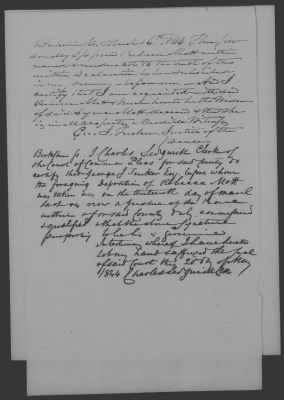 Berkshire ss. March 16th 1844 Then
appeared Rebecca Mott within
named & made oath to the truth of the
within Declaration by her subscribed
in my presence before me And I
certify that I am acquainted with said
Rebecca Mott
of said Mott deceased & that she
is in all respects a credible Witness
Geo. J. Tucker Justice of the
Peace
Berkshire ss. I Charles Sedgwick Clerk of
the Court of Common Pleas for said County do
certify that George J. Tucker Esq. before whom
the foregoing deposition of Rebecca Mott
was taken was on the day of March
last & is now a Justice of the Peace
within & for said County duly commissioned
& qualified & that the above signature
purporting to be his is genuine
In testimony whereof I have hereto
set my hand & affixed the seal
of said Court this 20 day of May
1844 Charles Sedgwick Clk